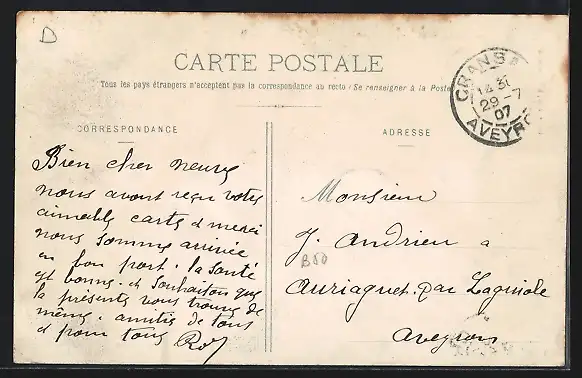 D
CARTE POSTALE
Tous les pays étrangers n'acceptent pas la correspondance au recto (Se renseigner à la Poste
CORRESPONDANCE
ADRESSE
GRANSA
14 31
29 - 7
07
AVEYRO
Bien cher neveu
nous avont reçu votre
aimable carte & merci
nous somme arrivée
en bon port. la santé
et bonne. et Souhaiton que
la présente vous trouve de
même. amitié de tous
& pour tous
Monsieur
J. Andrieu a
Auriaguet. par Laguiole
Aveyron
B50